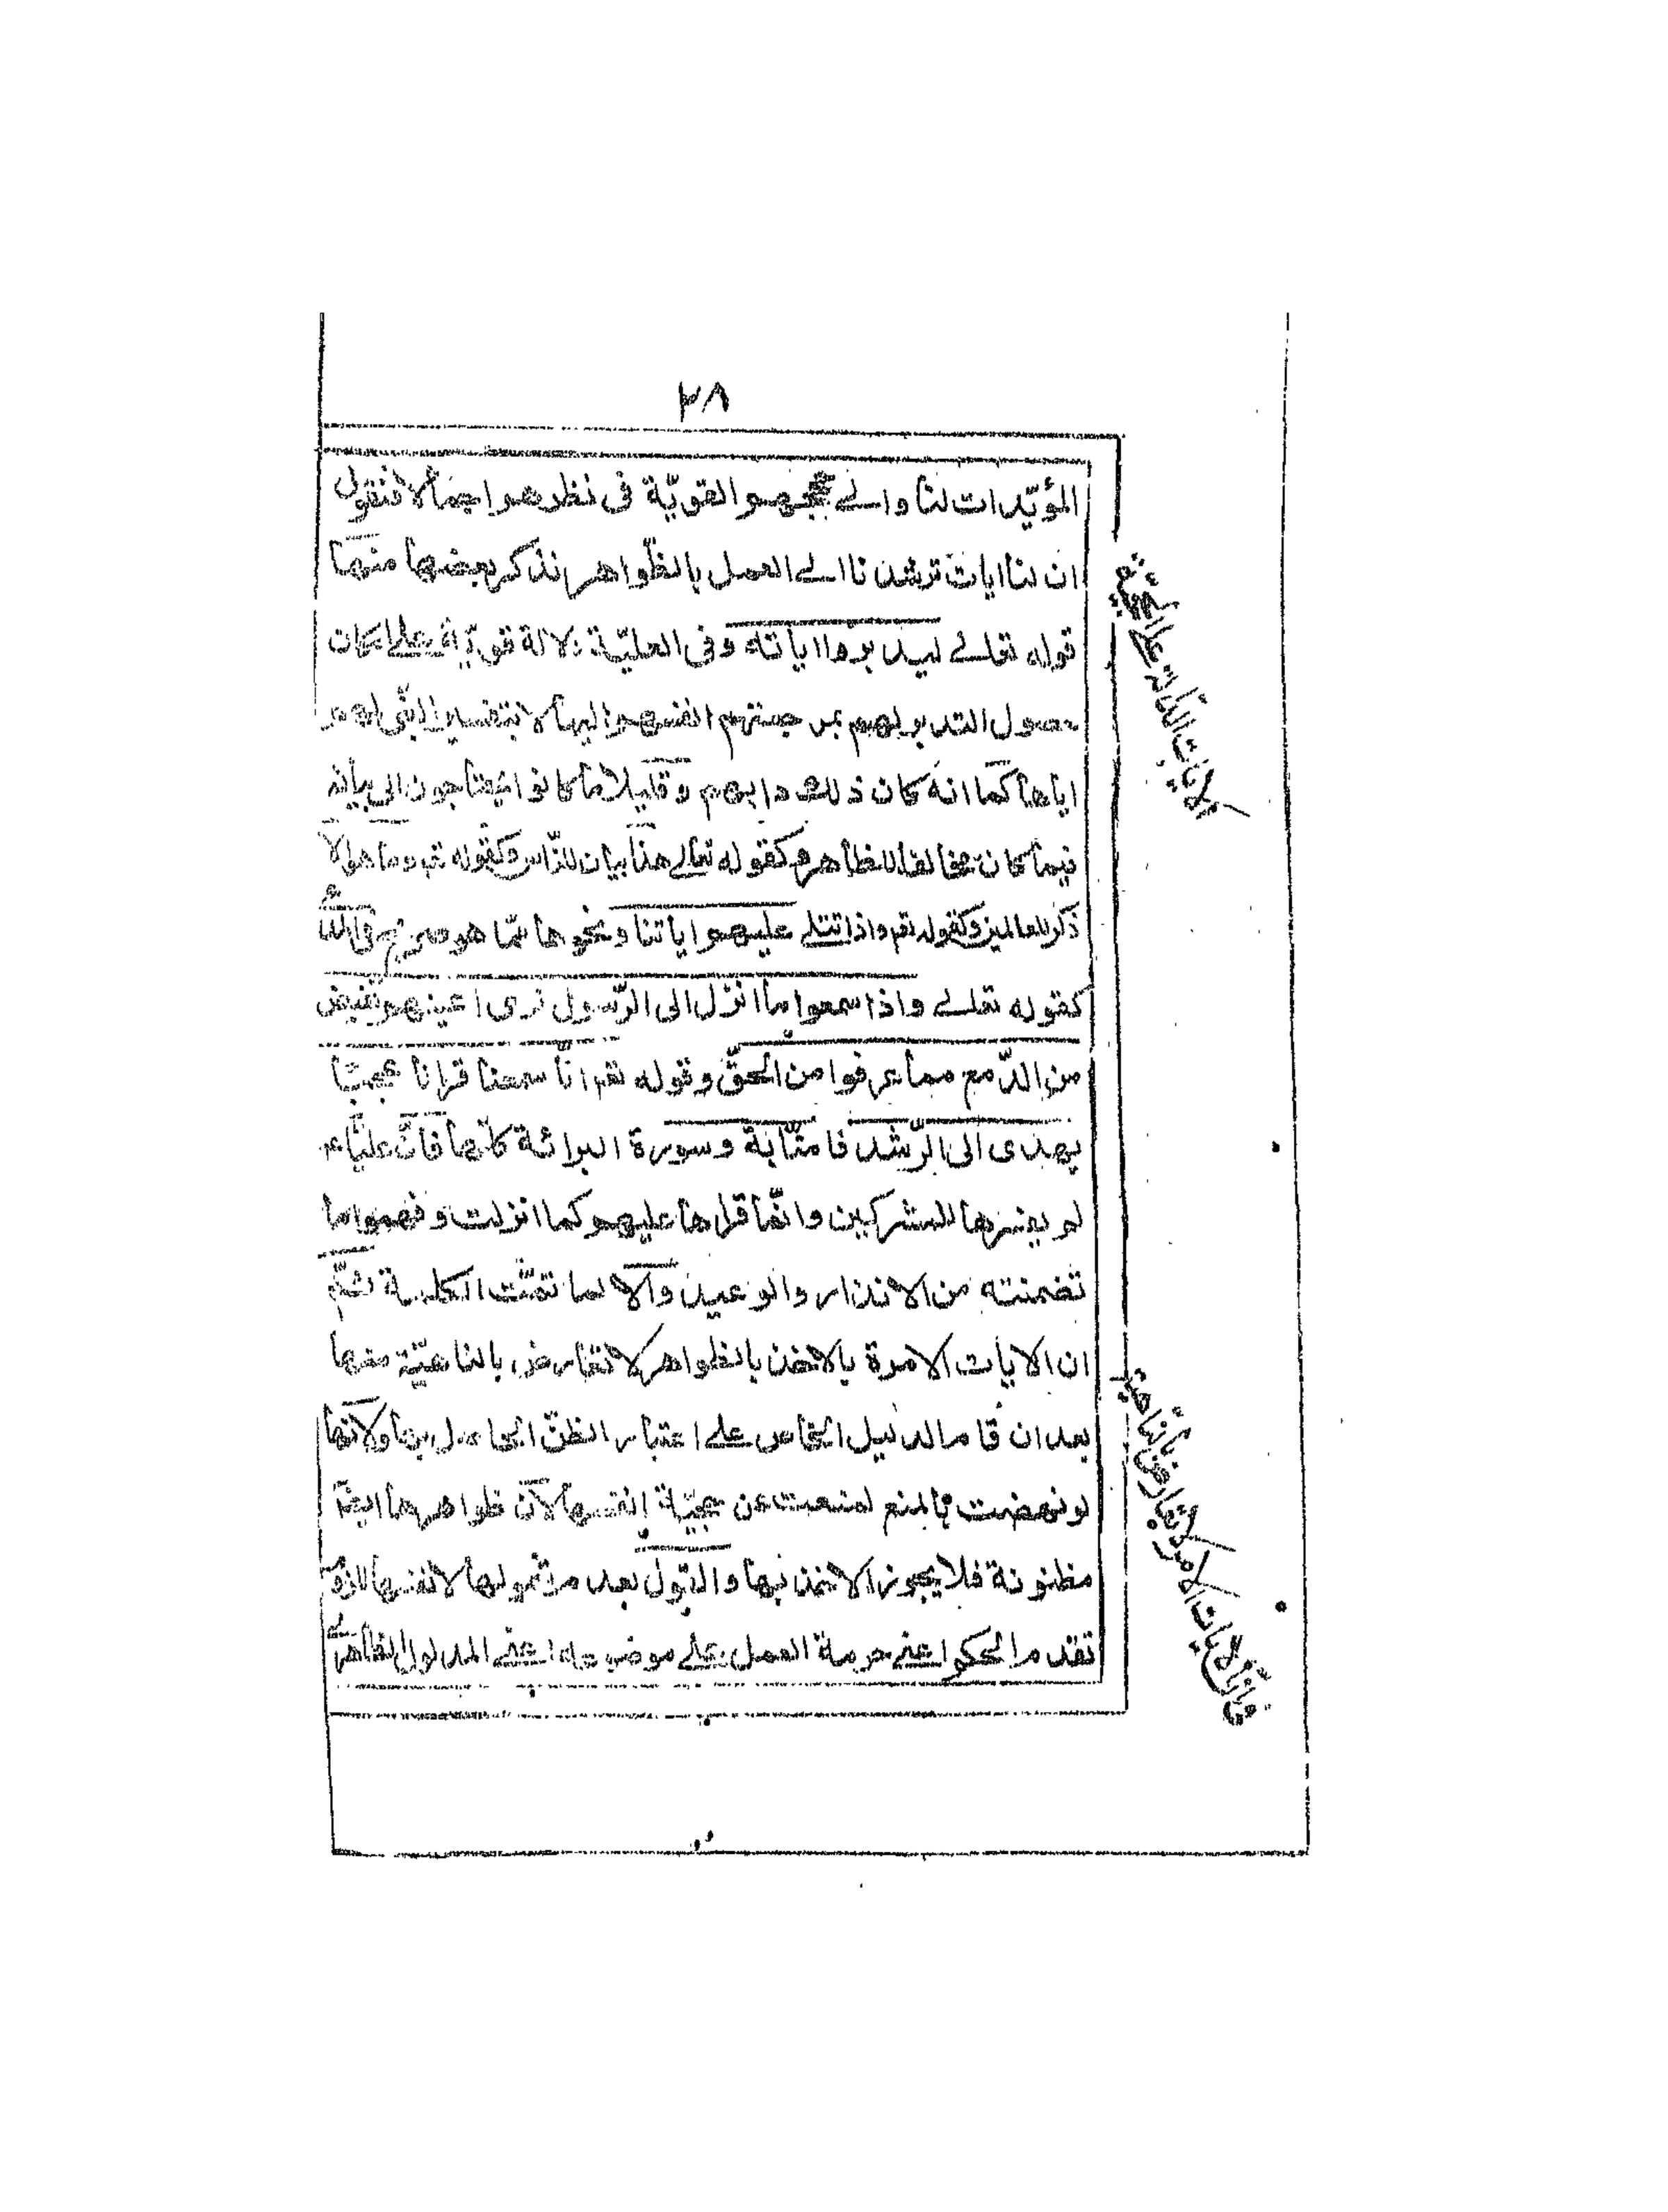 ٢٨
المؤيّدات لنا والے حججهم القويّة فی نظرهم اجمالا فنقول
ان لنا ايات ترشدنا الے العمل بالظّواهر نذكر بعضها منها
قوله تعالے ليدبروا اياته وفی العليّة دلالة قويّة علے امكان
حصول التدبر لهم من جهتهم انفسهم اليها لا بتفسير النّبی لهم
اياها كما انه كان ذلك دابهم وقليلا ما كانوا يحتاجون الی بيانه
فيما كان مخالفا للظاهر وكقوله تعالے هذا بيان للنّاس وكقوله تعم وما هو الا
ذكر للعالمين وكقوله تعم واذا تتلے عليهم اياتنا ونحوها ممّا هو صريح فی
كقوله تعالے واذا سمعوا ما انزل الی الرّسول تری اعينهم تفيض
من الدّمع مما عرفوا من الحقّ وقوله تعم انا سمعنا قرانا عجبا
يهدی الی الرّشد فامنّا به وسورة البرائة كلّها فانّ عليّا ع
لم يفسرها للمشركين وانّما قراها عليهم كما انزلت وفهموا ما
تضمنته من الانذار والوعيد والا لما تمّت الكلمة ثمّ
ان الايات الامرة بالاخذ بالظواهر لا تعارض بالناهيّة منها
بعد ان قام الدليل الخاص علے اعتبار الظنّ الحاصل بها ولانّها
لو نهضت بالمنع لمنعت عن حجيّة انفسها لانّ ظواهرها ايضا
مظنونة فلا يجوز الاخذ بها والقول بعدم شمولها لانفسها للزوم
تقدم الحكم اعنے حرمة العمل علے موضوعه اعنے المدلول الظاهری
الايات الدّالة علی
فی انّ الايات الامرة لا تعارض بالناهية